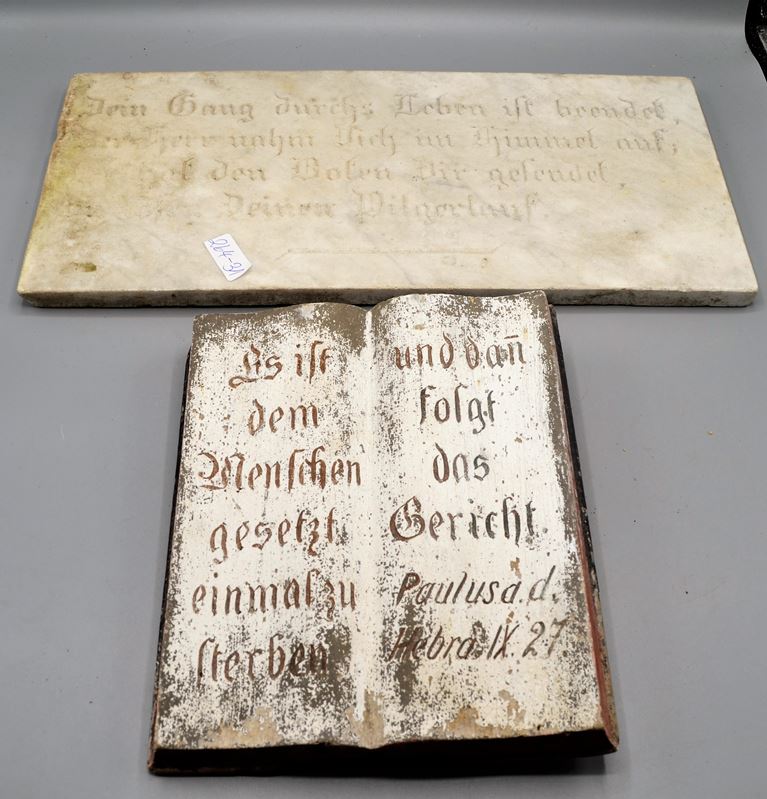 Dein Gang durchs Leben ist beendet,
Herr nahm Dich im Himmel auf;
hat den Boten Dir gesendet,
Deinen Pilgerlauf.
264-31
Es ist
dem
Menschen
gesetzt
einmal zu
sterben
und dan̄
folgt
das
Gericht.
Paulus a. d.
Hebrä. IX. 27